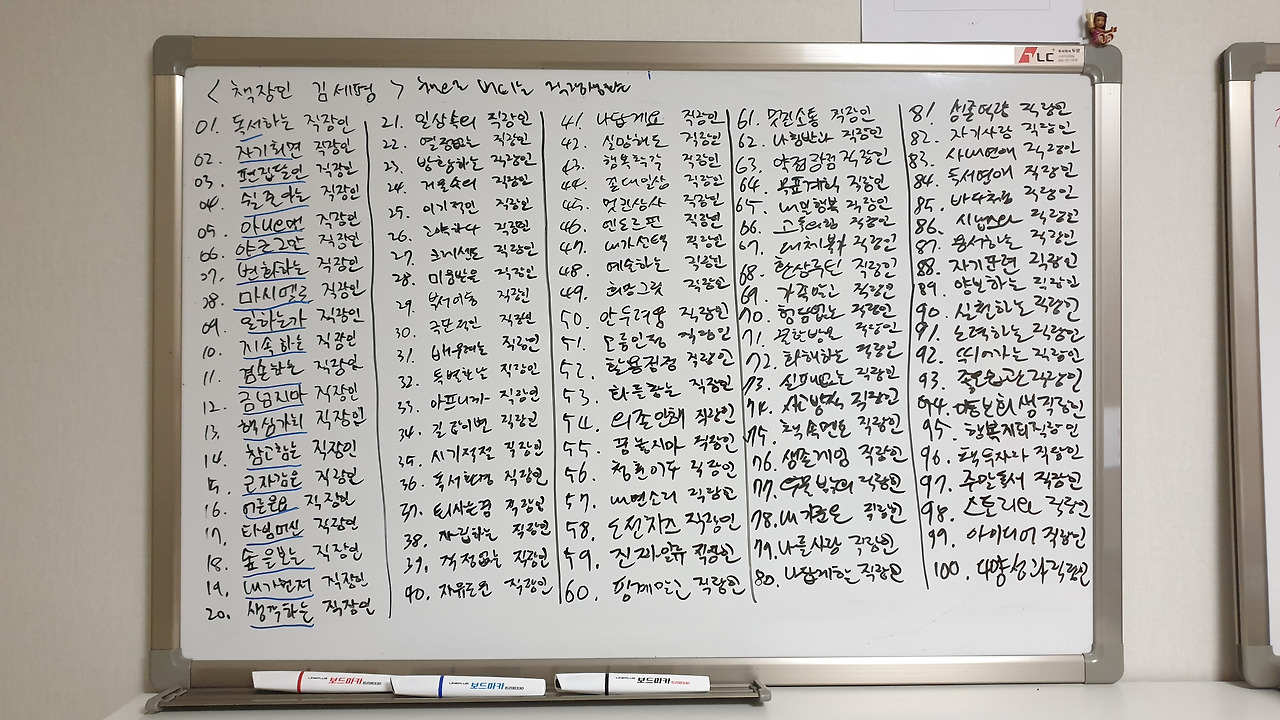 <책장인 김세평> 책으로 버티는 직장생활
01. 독서하는 직장인
02. 자기최면 직장인
03. 편집달인 직장인
04. 쉴 줄 아는 직장인
05. 직장인
06. 야근그만 직장인
07. 변화하는 직장인
08. 마시멜로 직장인
09. 직장인
10. 지속하는 직장인
11. 겸손하는 직장인
12. 겁남지마 직장인
13. 핵심가치 직장인
14. 참고참는 직장인
15. 직장인
16. 어른은요 직장인
17. 타임머신 직장인
18. 숲을보는 직장인
19. 내가먼저 직장인
20. 생각하는 직장인
21. 일상속의 직장인
22. 열정없는 직장인
23. 방황하는 직장인
24. 거울속의 직장인
25. 이기적인 직장인
26. 직장인
27. 크레센도 직장인
28. 미움받은 직장인
29. 부서이동 직장인
30. 극단적인 직장인
31. 배우려는 직장인
32. 독벌하는 직장인
33. 아프니까 직장인
34. 직장인
35. 시기적절 직장인
36. 독서환경 직장인
37. 퇴사는꿈 직장인
38. 자립하는 직장인
39. 걱정없는 직장인
40. 자유도 직장인
41. 나답게요 직장인
42. 실망해도 직장인
43. 행복조각 직장인
44. 꼰대일상 직장인
45. 멋진상사 직장인
46. 엔도르핀 직장인
47. 내가선택 직장인
48. 예습하는 직장인
49. 희망그릇 직장인
50. 안두려움 직장인
51. 소음인정 직장인
52. 활용긍정 직장인
53. 직장인
54. 의존안해 직장인
55. 직장인
56. 청춘이두 직장인
57. 내면소리 직장인
58. 도전자즈 직장인
59. 직장인
60. 핑계말고 직장인
61. 직장인
62. 나침반과 직장인
63. 약점강점 직장인
64. 목표계획 직장인
65. 내일행복 직장인
66. 직장인
67. 대체불가 직장인
68. 환상극단 직장인
69. 가족말고 직장인
70. 험담없는 직장인
71. 무한반복 직장인
72. 화해하는 직장인
73. 실패없는 직장인
74. 직장인
75. 책속멘토 직장인
76. 생존게임 직장인
77. 우물밖의 직장인
78. 내기준은 직장인
79. 나를사랑 직장인
80. 나답게한 직장인
81. 직장인
82. 자기사랑 직장인
83. 사내연애 직장인
84. 독서연애 직장인
85. 바다처럼 직장인
86. 직장인
87. 용서하는 직장인
88. 자기훈련 직장인
89. 양보하는 직장인
90. 실천하는 직장인
91. 노력하는 직장인
92. 뛰어가는 직장인
93. 좋은습관 직장인
94. 직장인
95. 행복지되 직장인
96. 책투자와 직장인
97. 주말독서 직장인
98. 스토리요 직장인
99. 아이디어 직장인
100. 다양성과 직장인
LC
LINEPLUS 보드마카
LINEPLUS 보드마카
LINEPLUS 보드마카